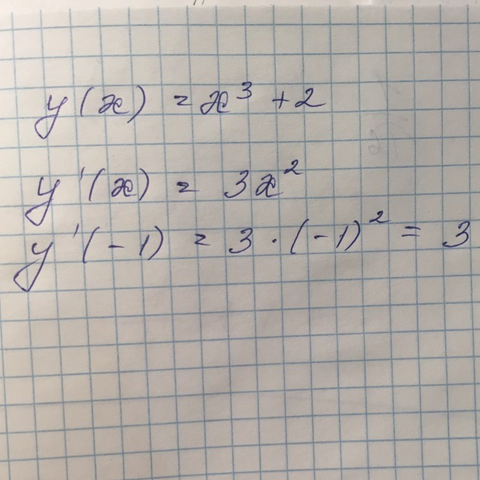 y(x) = x³ + 2
y'(x) = 3x²
y'(-1) = 3·(-1)² = 3